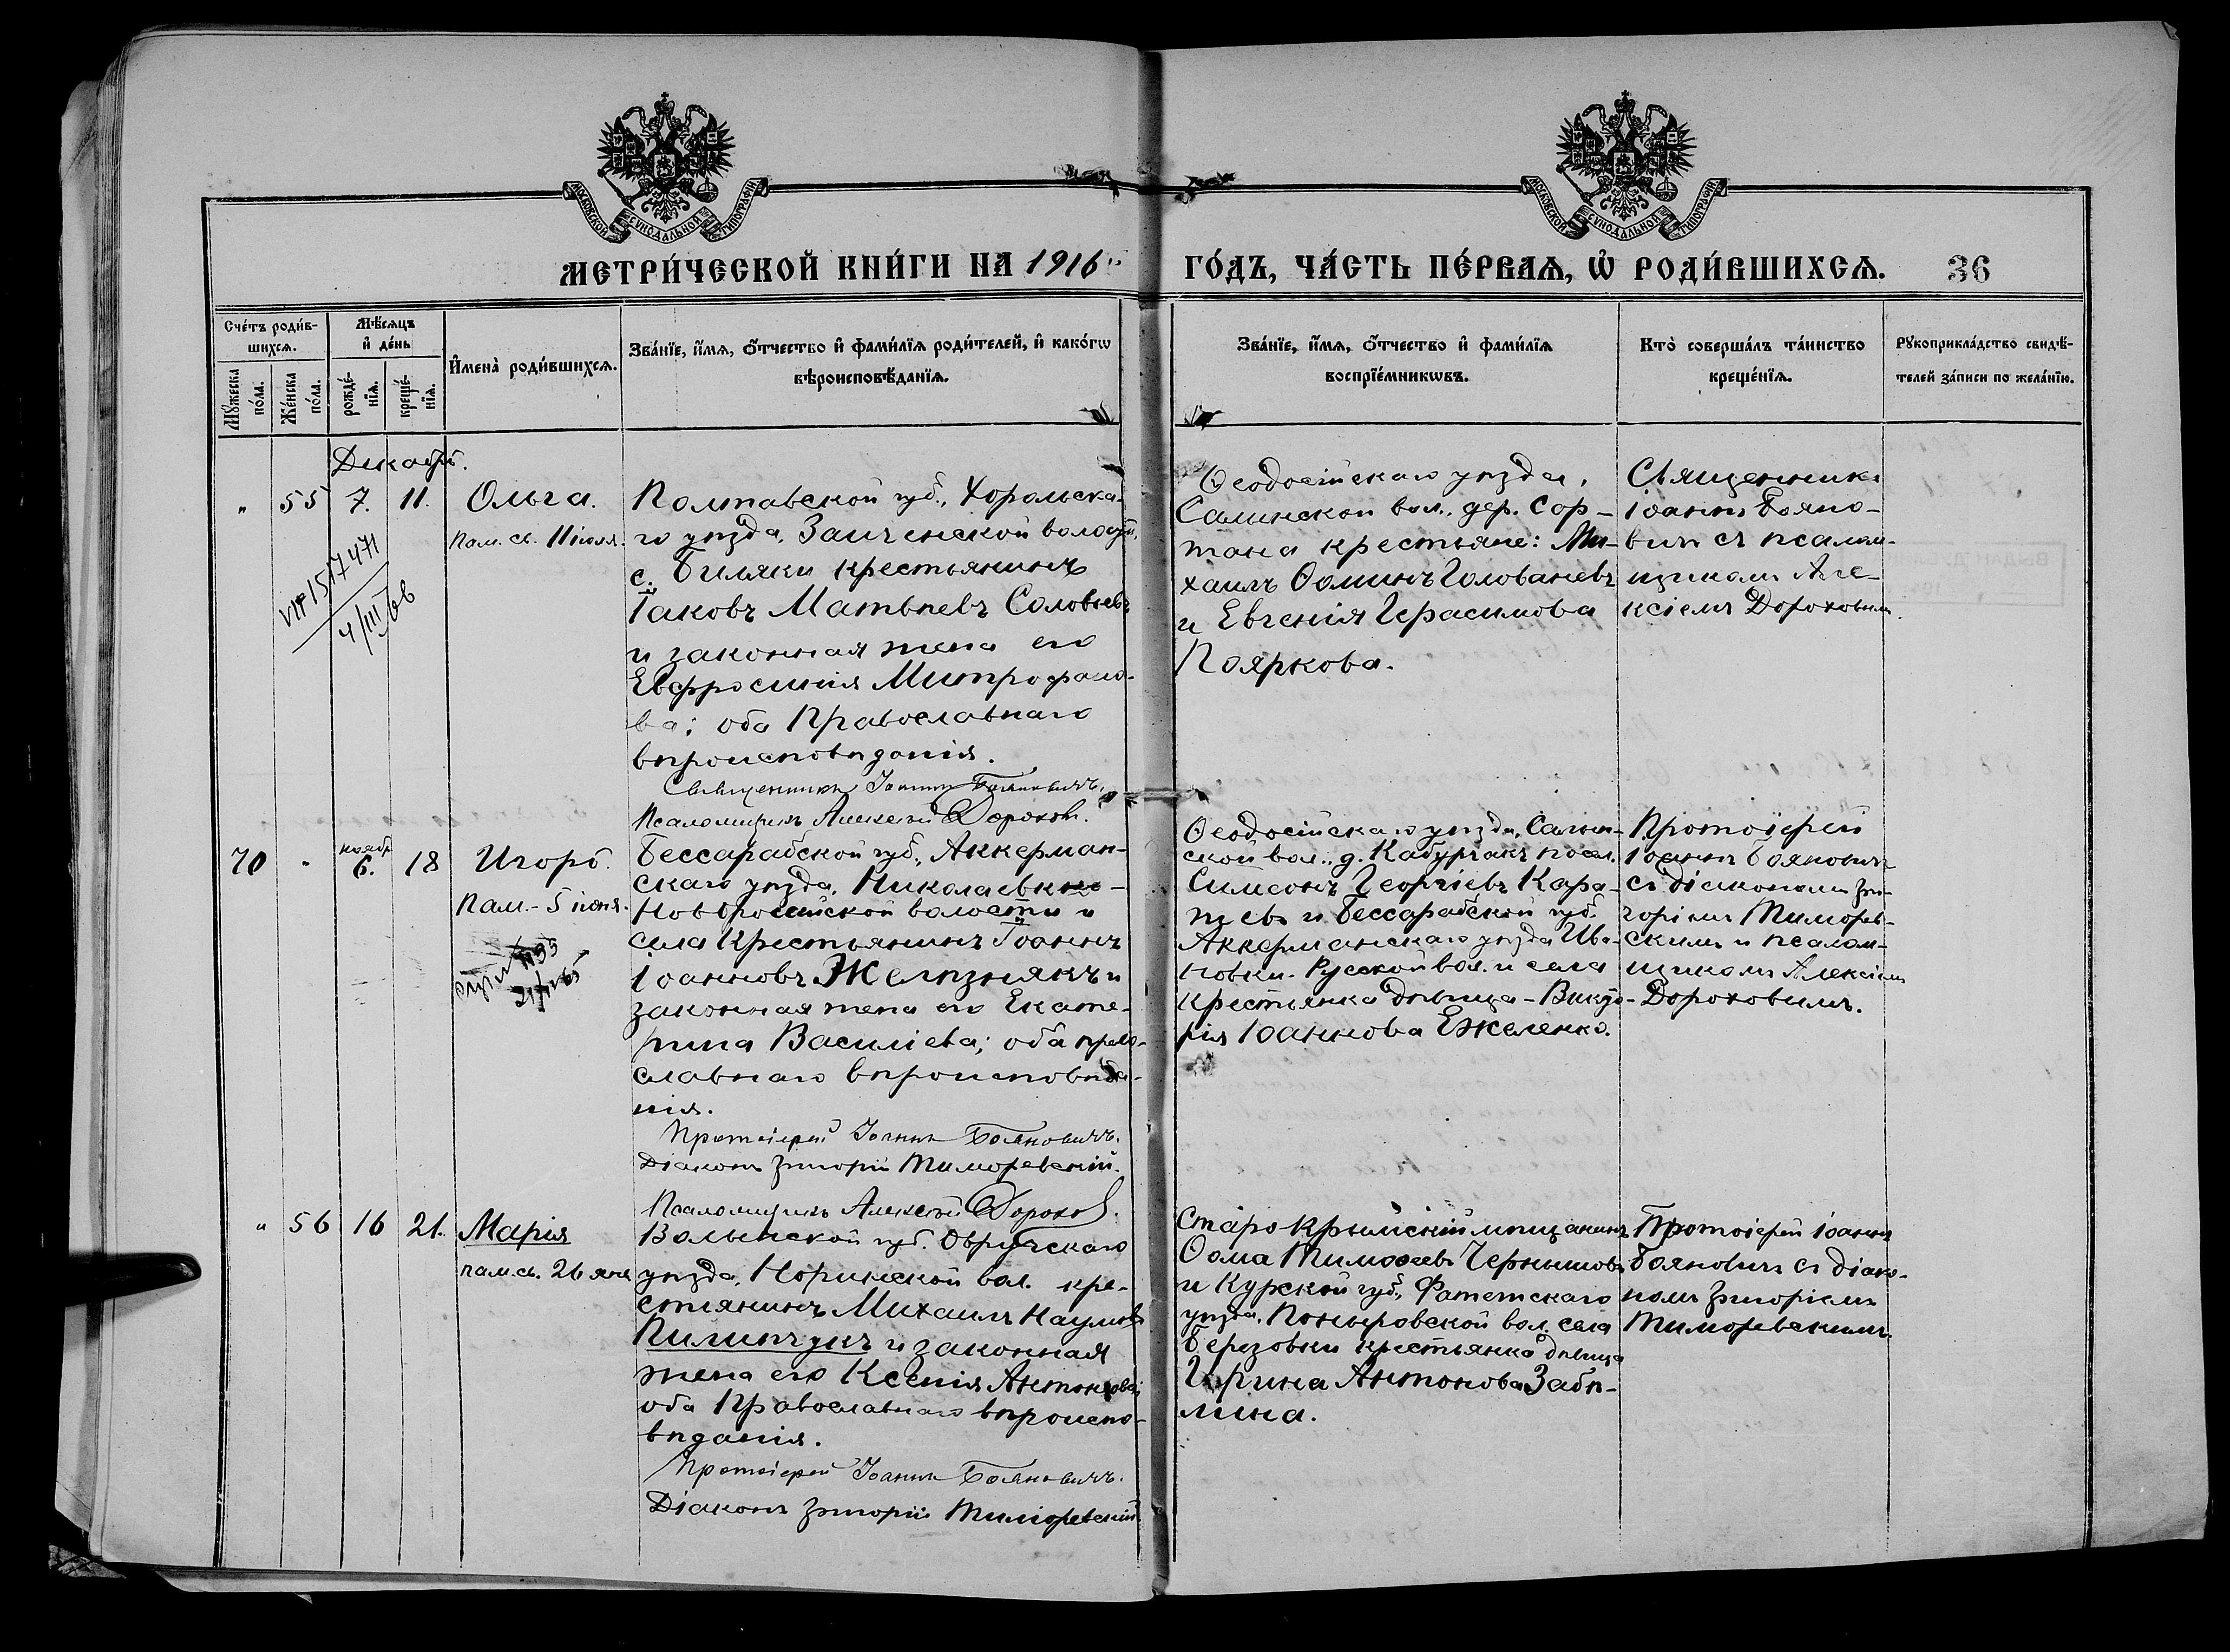 МОСКОВСКОЙ СѴНОДАЛЬНОЙ ТИПОГРАФІИ
МОСКОВСКОЙ СѴНОДАЛЬНОЙ ТИПОГРАФІИ
МЕТРИ́ЧЕСКОЙ КНИ́ГИ НА 1916
ГО́ДЪ, ЧА́СТЬ ПЕ́РВАѦ, Ѡ҆ РОДИ́ВШИХСѦ.
36
Сче́тъ роди́в-
шихсѧ.
Мꙋ́жеска по́ла.
Же́нска по́ла.
Мѣ́сѧцъ
и҆ де́нь
рожде́-
нїѧ.
креще́-
нїѧ.
И҆мена̀ роди́вшихсѧ.
Зва́нїе, и҆́мѧ, ѻ҆́тчество и҆ фами́лїѧ роди́телей, и҆ како́гѡ
вѣроисповѣ́данїѧ.
Зва́нїе, и҆́мѧ, ѻ҆́тчество и҆ фами́лїѧ
воспрїе́мникѡвъ.
Кто̀ соверша́лъ та́инство
креще́нїѧ.
Рꙋкоприкла́дство свидѣ́-
телей за́писи по жела́нїю.
Декабрь.
"
55
7.
11.
Ольга.
Пам. св. 11 іюля.
VIЯ 1517471
4/III 66
Полтавской губ., Хорольска-
го уѣзда, Заиченской волости,
с. Биляки крестьянинъ
Іаковъ Матѳеевъ Соловьевъ
и законная жена его
Евфросинія Митрофано-
ва; оба Православнаго
вѣроисповѣданія.
Священникъ Іоаннъ Бояновичъ.
Псаломщикъ Алексѣй Дороховъ.
Ѳеодосійскаго уѣзда,
Салынской вол., дер. Сор-
тана крестьяне: Ми-
хаилъ Ѳоминъ Голованевъ
и Евгенія Герасимова
Пояркова.
Священникъ
Іоаннъ Бояно-
вичъ съ псалом-
щикомъ Але-
ксіемъ Дороховымъ.
70
"
ноябр
6.
18
Игорь.
Пам. - 5 іюня.
Бессарабской губ., Аккерман-
скаго уѣзда, Николаевкно-
Новоросійской волости и
села Крестьянинъ Іоаннъ
Іоанновъ Желѣзнякъ и
законная жена его Екате-
рина Василіева; оба право-
славнаго вѣроисповѣда-
нія.
Протоіерей Іоаннъ Бояновичъ.
Діаконъ Григорій Тиморевскій.
Псаломщикъ Алексѣй Дороховъ.
Ѳеодосійскаго уѣзда, Салын-
ской вол., д. Кабурчакъ посел.
Симеонъ Георгіевъ Кара-
и Бессарабской губ.
Аккерманскаго уѣзда Ива-
новки-Русской вол. и села
крестьянка дѣвица - Викто-
рія Іоаннова Ежеленко.
Протоіерей
Іоаннъ Бояновичъ
съ діакономъ Гри-
горіемъ Тиморев-
скимъ и псалом-
щикомъ Алексіемъ
Дороховымъ.
"
56
16
21.
Марія
пам. св. 26 янв
Волынской губ. Овручскаго
уѣзда, Норинской вол. кре-
стьянинъ Михаилъ Наумовъ
Пилипчукъ и законная
жена его Ксенія Антонова;
оба Православнаго вѣроиспо-
вѣданія.
Протоіерей Іоаннъ Бояновичъ.
Діаконъ Григорій Тиморевскій
Старо-Крымскій мѣщанинъ
Ѳома Тимоѳеевъ Чернышовъ
и Курской губ., Фатежскаго
уѣзда, Поныровской вол. села
Березовки крестьянка дѣвица
Ирина Антонова Забѣ-
лина.
Протоіерей Іоаннъ
Бояновичъ съ діако-
номъ Григоріемъ
Тиморевскимъ.